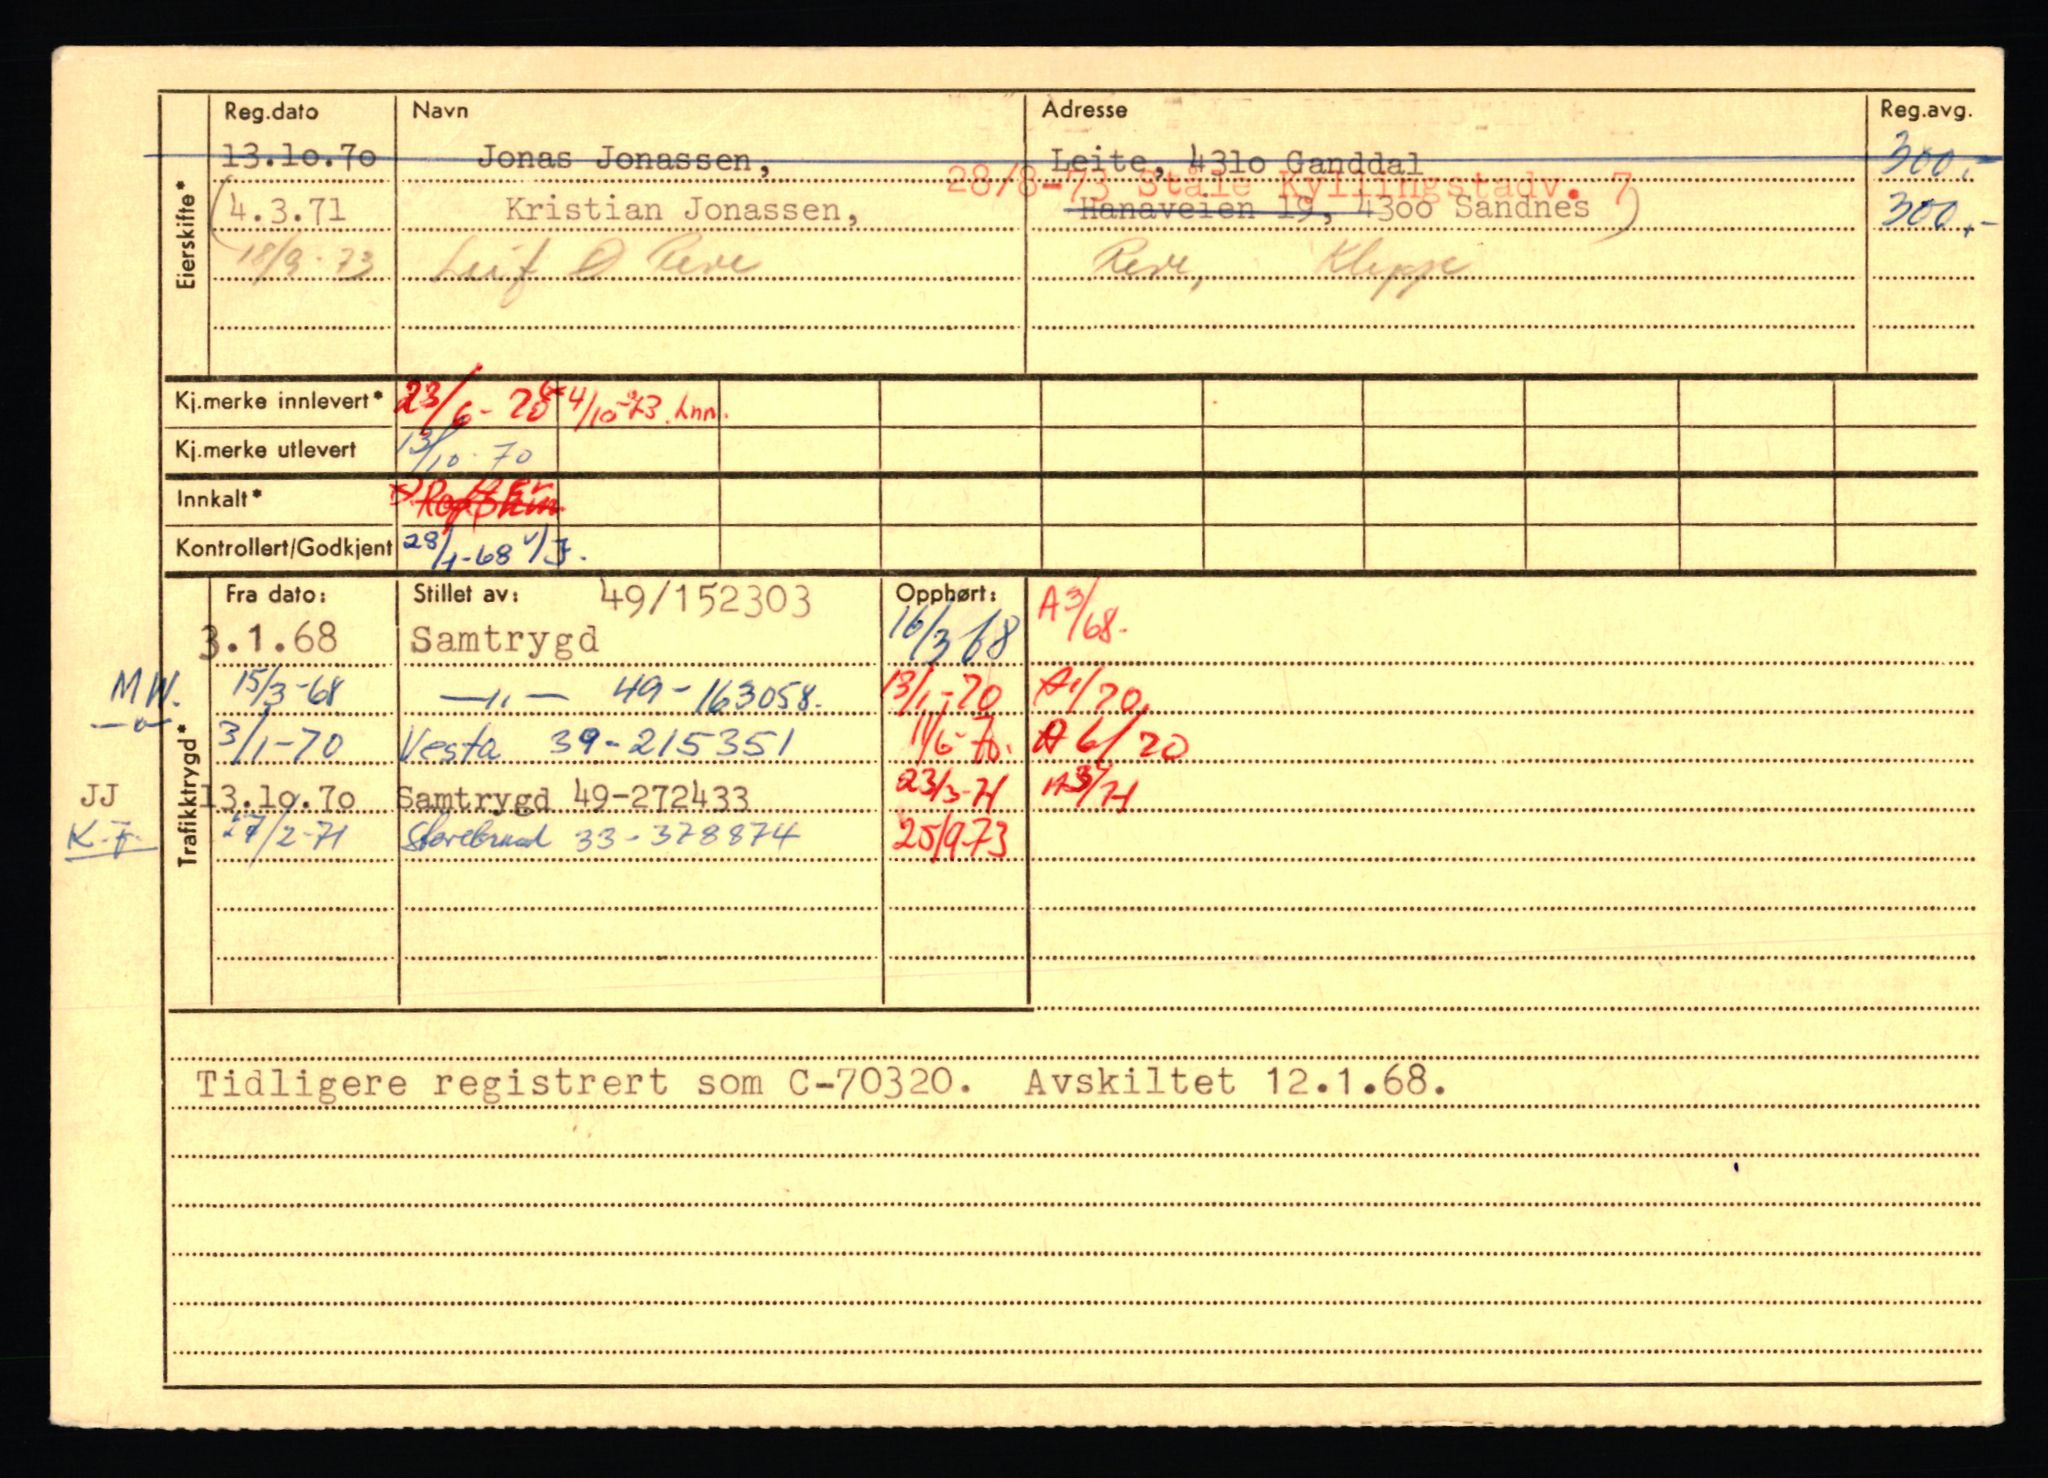 Reg.dato Navn Adresse Reg.avg.
13.10.70 Jonas Jonassen, Leite, 4310 Ganddal 300,-
28/8-73 Ståle Kyllingstadv. 7
4.3.71 Kristian Jonassen, Hanaveien 19, 4300 Sandnes 300,-
18/9-73 Leif O Reve Reve, Kleppe
Eierskifte*
Kj.merke innlevert* 23/6-70 4/10-73. Lnn.
Kj.merke utlevert 13/10-70
Innkalt*
Kontrollert/Godkjent 28/1-68 v/J.
Fra dato: Stillet av: 49/152303 Opphørt: A 3/68.
3.1.68 Samtrygd 16/3 68
MW. 15/3-68 —„— 49-163058. 13/1-70 A1/70.
—„— 3/1-70 Vesta 39-215351 11/6-70. A 6/70
JJ 13.10.70 Samtrygd 49-272433 23/3-71 A3/71
K.F. 27/2-71 Storebrand 33-378874 25/9-73
Trafikktrygd*
Tidligere registrert som C-70320. Avskiltet 12.1.68.